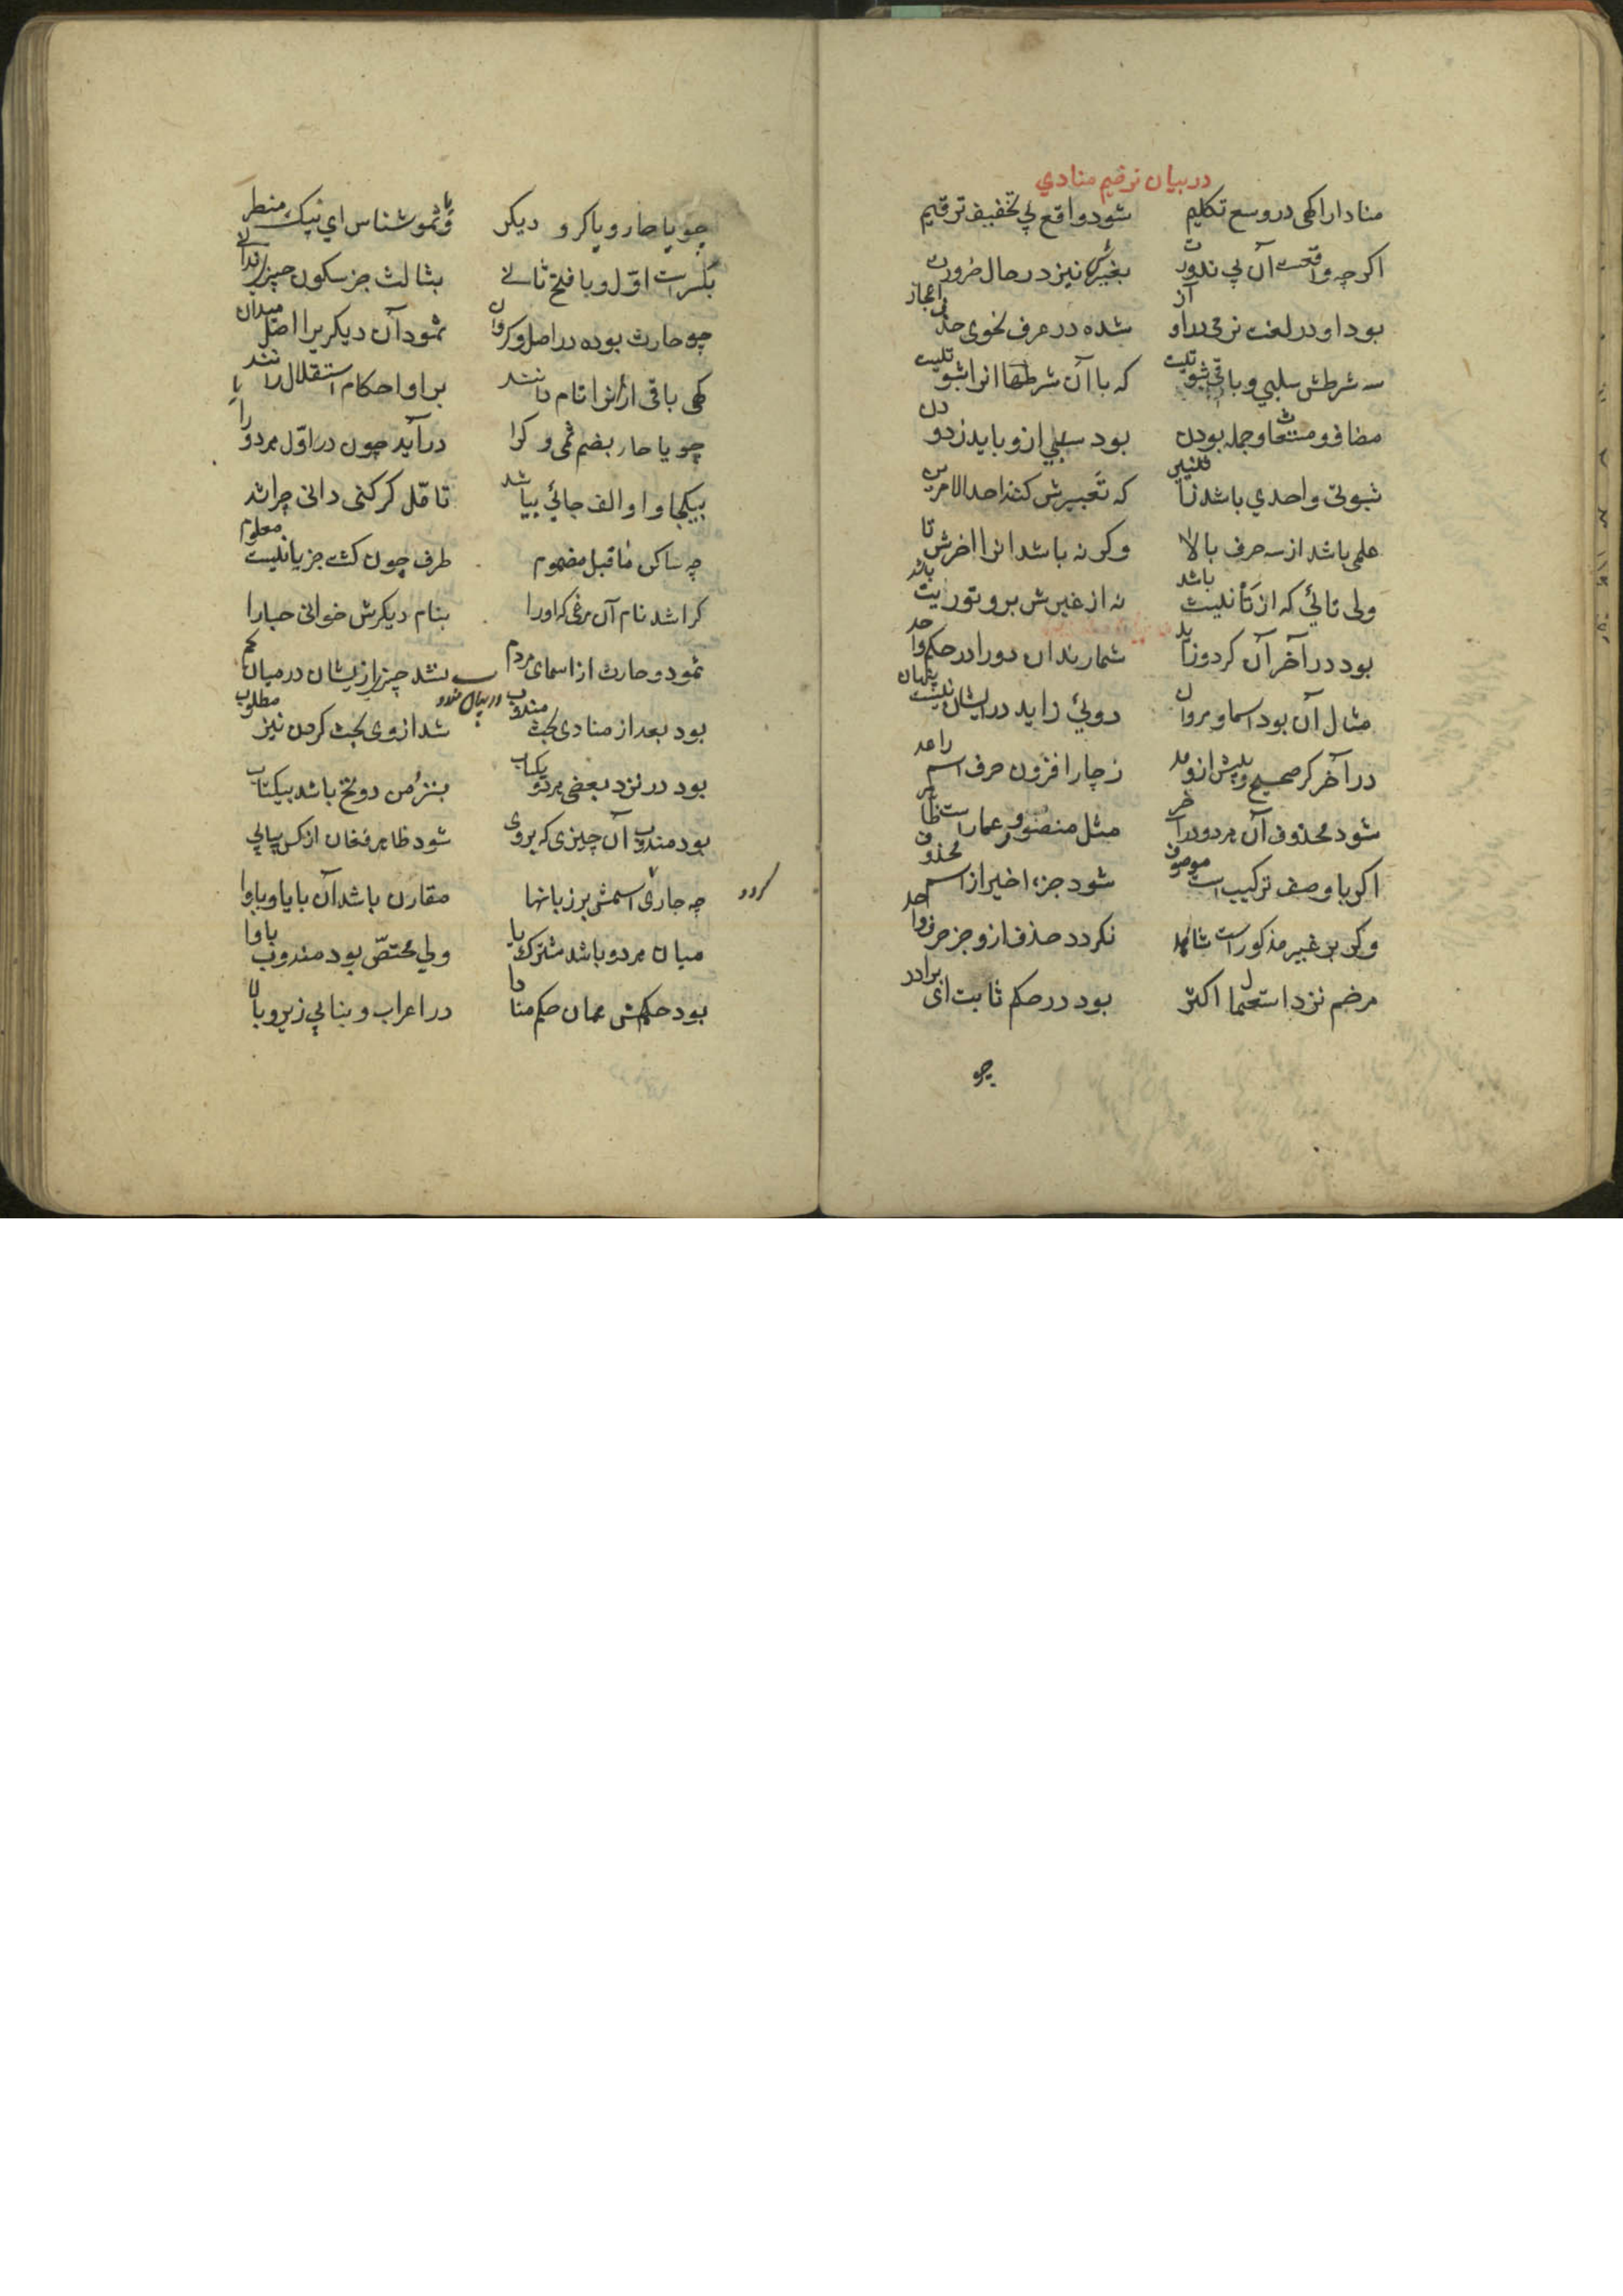 در بیان ترخیم منادی
منادا را کهی در وسع تکلیم شود واقع پی تخفیف ترخیم
اگرچه واقعست آن بی ندورت بغیرش نیز در حال ضرورت
بود او در لغت نرمی در آواز شده در عرف نحوی حذف
سه شرطش سلبی و باقی ثبوتیست که با آن شرطها انرا ثبوتیست
مضاف و مستغاث و جمله بودن بود سلبی ازو باید زدودن
ثبوتی واحدی باشد ز اثنین که تعبیرش کنند احد الامرین
علمی باشد از سه حرف بالا وکر نه باشد انرا اخرش تا
ولی تائی که از تأنیث باشد نه از غیرش برو توریث باشد
بود در آخر آن کر دو زاید شمارند آن دو را در حکم واحد
مثال آن بود اسما و مروان دوئی زاید در ایشان نیست پنهان
در آخر کر صحیح و پیش ازو مد ز چار افزون حرف اسم را عد
شود محذوف آن هر دو در آخر مثل منصور و عمار است ظاهر
اکر با وصف ترکیب است موصوف شود جزء اخیر از اسم محذوف
وکر بر غیر مذکور است شاهد نکردد حذف ازو جز حرف واحد
مرخم نزد استعمال اکثر بود در حکم ثابت ای برادر
چو
چو یا حار و یا کرو دیکر و یا ثمو شناس ای نیک منظر
بکسر است اوّل و با فتح ثانی بثالث جز سکون چیزی ندانی
چو حارث بوده در اصل و کروان ثمود آن دیکریرا اصل میدان
کهی باقی ازانرا تام دانند بر او احکام استقلال رانند
چو یا حار بضم ثمی و کرا در آید چون در اوّل هر دو را یا
بیکجا واو الف جائی بیا شد تامّل کر کنی دانی چرا شد
چه ساکن ماقبل مضموم طرف چون کشت جز یا نیست معلوم
کرا شد نام آن مرغی که او را بنام دیکرش خوانی حبارا
ثمود و حارث از اسمای مردم نشد چیزی ازیشان در میان کم
در بیان مندوب
بود بعد از منادی بحث مندوب شد از وی بحث کردن نیز مطلوب
بود در نزد بعضی هر دو یکباب بنزد من دو نخ باشد بیکتاب
بود مندوب آن چیزی که بر وی شود ظاهر فغان از کس پیاپی
چه جاری اسمش بر زبانها مقارن باشد آن با یا و با وا
کردد
میان هر دو باشد مشترک یا ولی مختصّ بود مندوب با وا
بود حکمش همان حکم منادا در اعراب و بنایی زیر و بالا